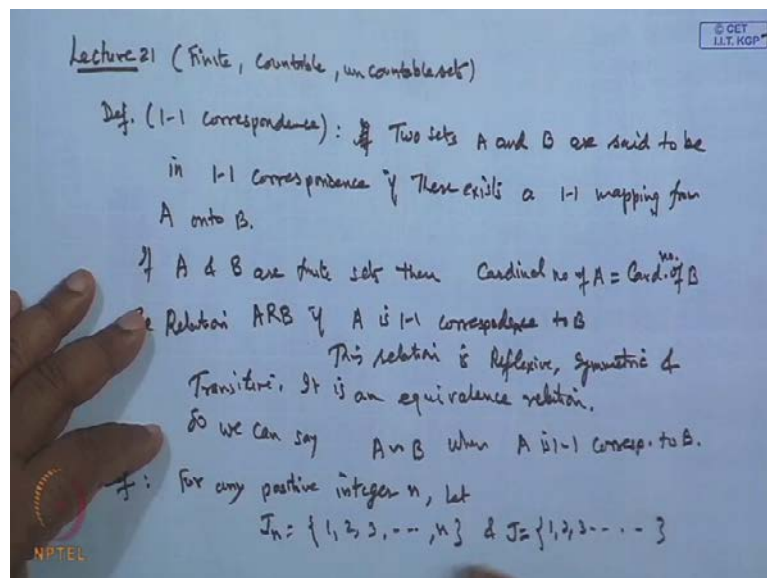 © CET
I.I.T. KGP
Lecture 21 (Finite, Countable, uncountable sets)
Def. (1-1 correspondence): Two sets A and B are said to be
in 1-1 correspondence if There exists a 1-1 mapping from
A onto B.
If A & B are finite sets then Cardinal no of A = Card. no. of B
Relation ARB if A is 1-1 correspondence to B
This relation is Reflexive, Symmetric &
Transitive. It is an equivalence relation.
So we can say A ~ B when A is 1-1 corresp. to B.
: For any positive integer n, let
Jn = {1, 2, 3, ---, n} & J = {1, 2, 3 - - - - - }
NPTEL